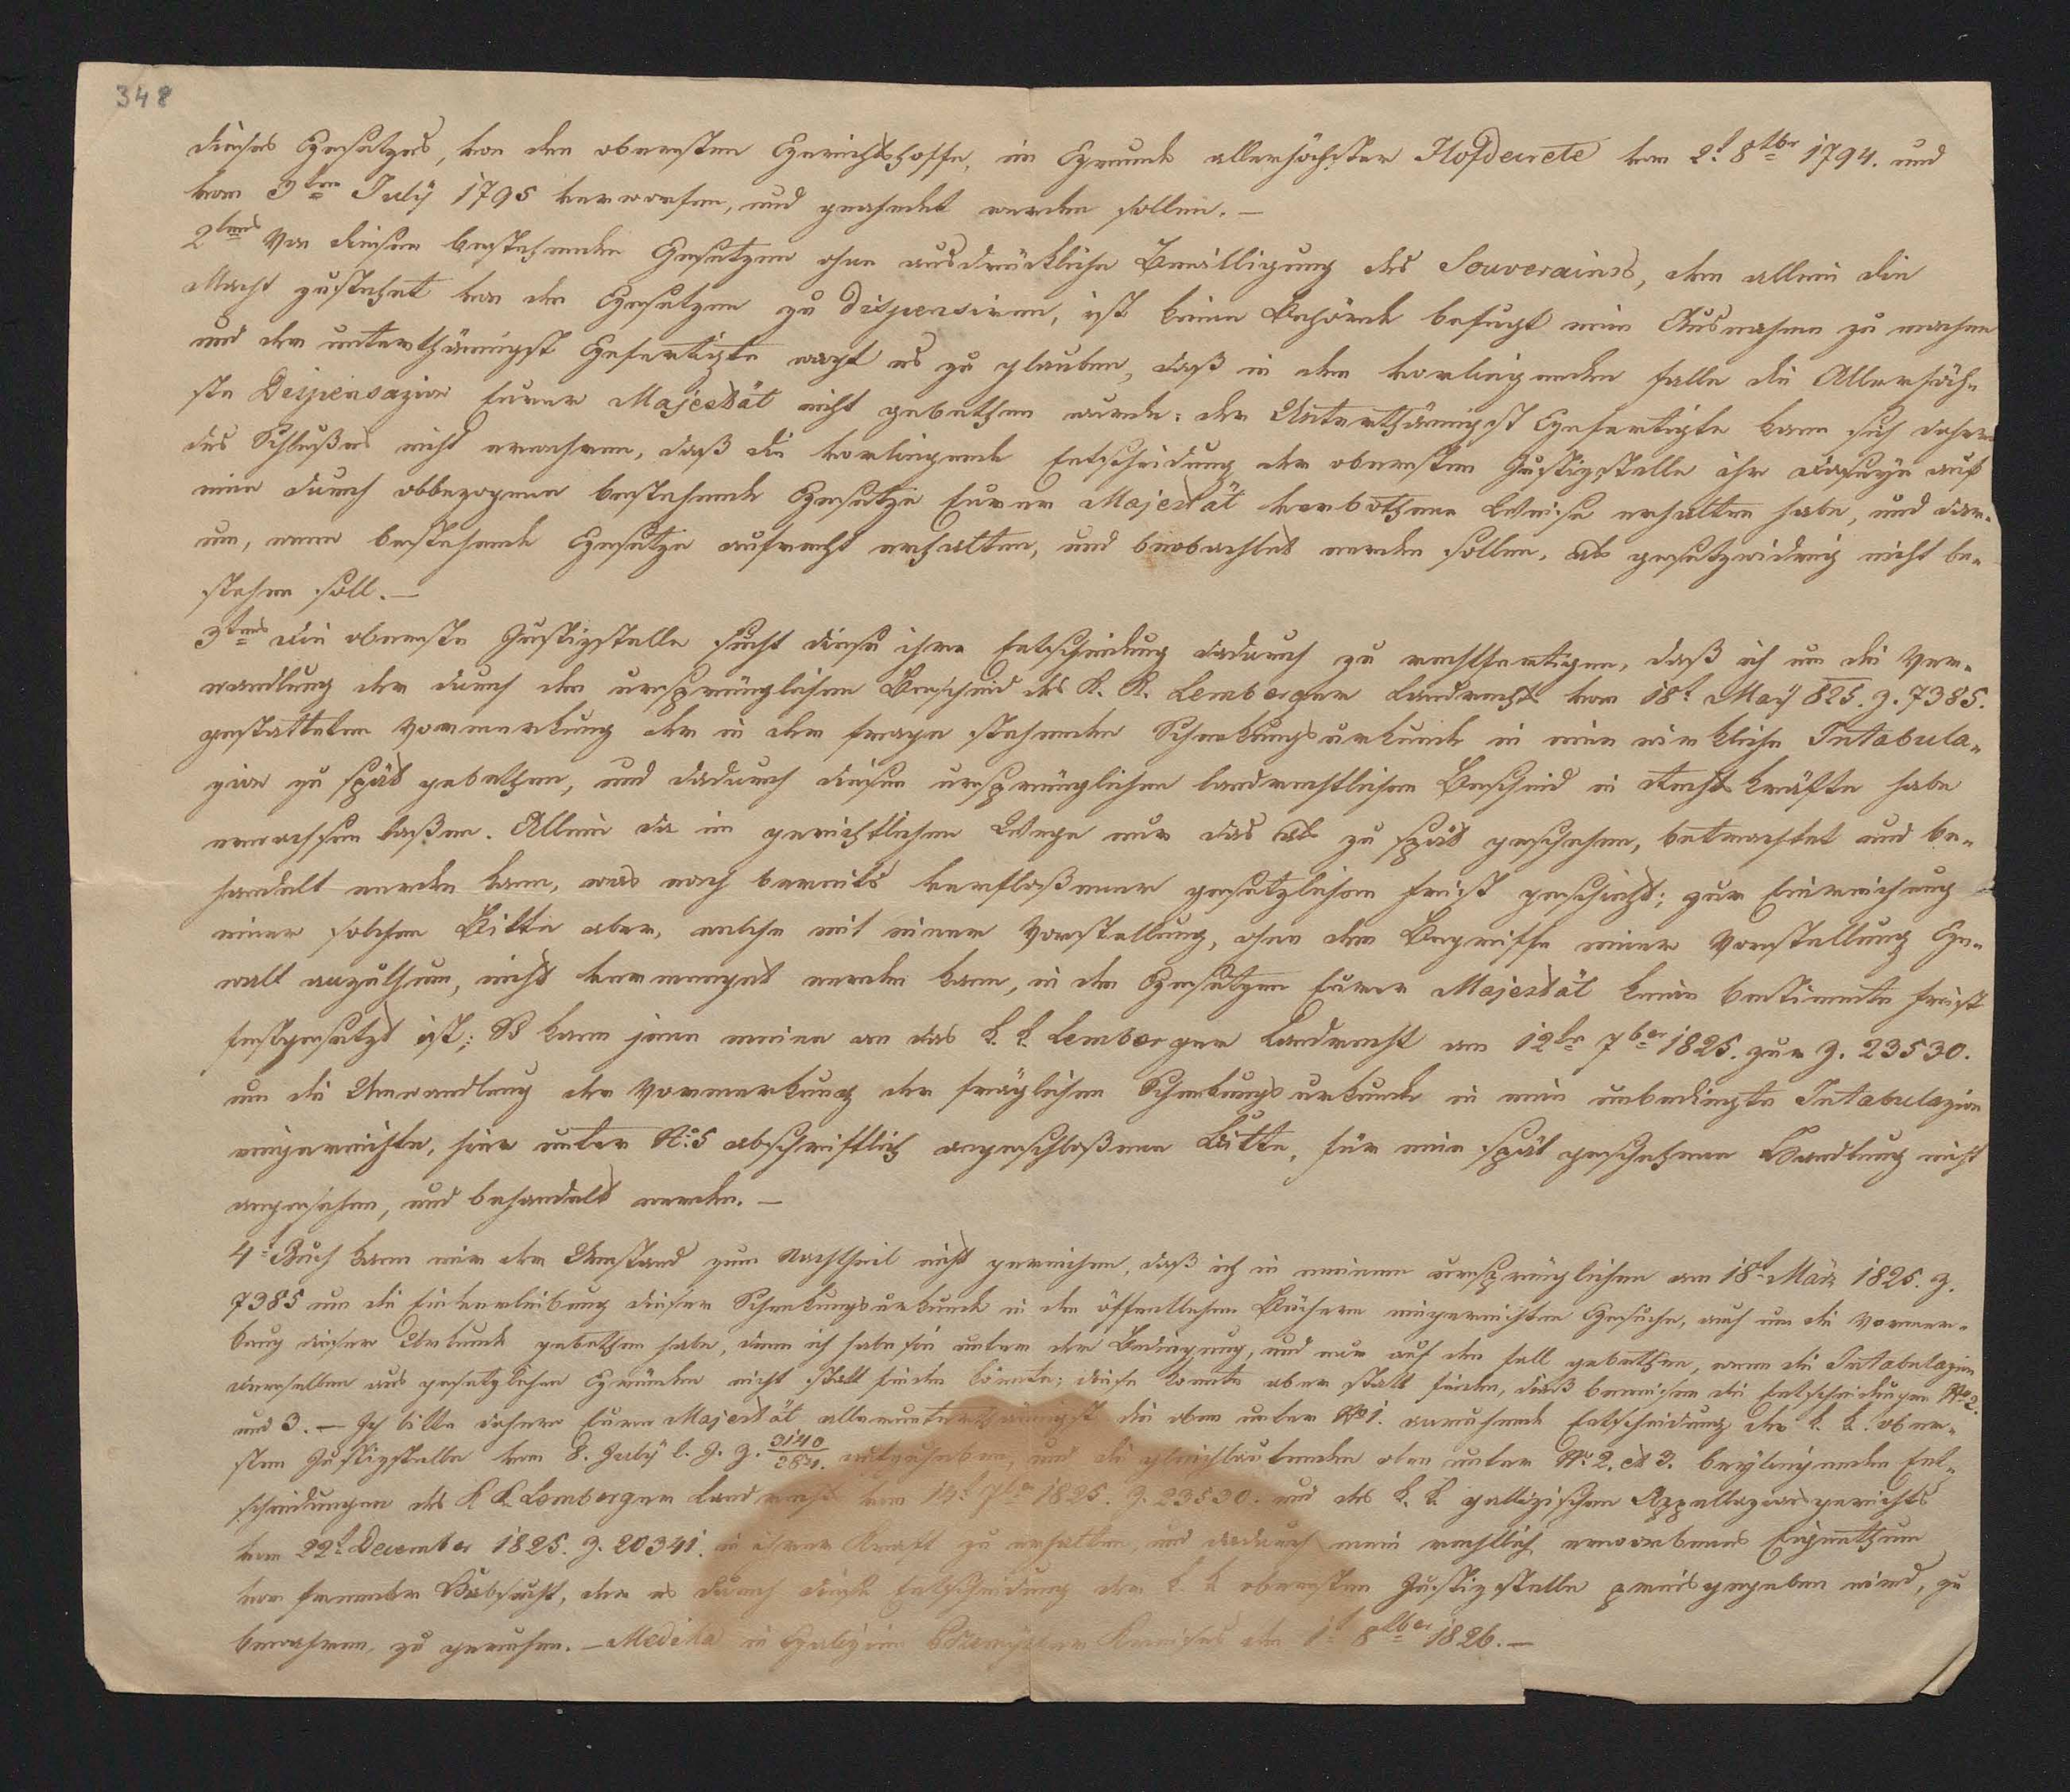 348
dieses Gesetzes, von den obersten Gerichtshoffe, im Grunde allerhöchster Hofdecrete vom 2t 8tber 1794. und
vom 3ten July 1795 verworfen, und geahndet werden sollen. —
2tens Von diesen bestehenden Gesetzen ohne ausdrückliche Bewilligung des Souverains, dem allein die
Macht zustehet von den Gesetzen zu dispensiren, ist keine Behörde befugt eine Ausnahme zu machen
und der unterthänigst Gefertigte wagt es zu glauben, daß in dem vorliegenden Falle die Allerhöch-
ste Dispensazion Eurer Majestät nicht gebethen wurde: der Unterthänigst Gefertigte kann sich daher
des Schlußes nicht erwehren, daß die vorliegende Entscheidung der obersten Justizstelle ihr Daseyn auf
eine durch obbezogene bestehende Gesetze Eurer Majestät verbothene Weise erhalten habe, und dar-
um, wenn bestehende Gesetze aufrecht erhalten, und beobachtet werden sollen, als gesetzwidrig nicht be-
stehen soll. —
3tens Die oberste Justizstelle sucht diese ihre Entscheidung dadurch zu rechtfertigen, daß ich um die Ver-
wandlung der durch den ursprünglichen Bescheid des K. K. Lemberger Landrechts vom 18t May 825. Z. 7385.
gestatteten Vormerkung der in der Frage stehenden Schenkungsurkunde in eine wirkliche Intabula-
zion zu spät gebethen, und dadurch diesen ursprünglichen landrechtlichen Bescheid in Rechtskräfte habe
erwachsen laßen. Allein da im gerichtlichen Wege nur das als zu spät geschehen, betrachtet und be-
handelt werden kann, was nach bereits verfloßener gesetzlichen Frist geschieht; zur Einreichung
einer solchen Bitte aber, welche mit einer Vorstellung, ohne dem Begriffe einer Vorstellung Ge-
walt anzuthun, nicht vermengt werden kann, in den Gesetzen Eurer Majestät keine bestimmte Frist
festgesetzt ist; So kann jene meine an das k. k. Lemberger Landrecht am 12ten 7ber 1825. zur Z. 23530.
um die Umwandlung der Vormerkung der fräglichen Schenkungsurkunde in eine unbedingte Intabulazion
eingereichte, hier unter No. 5 abschriftlich angeschloßene Bitte, für eine spät geschehene Handlung nicht
angesehen, und behandelt werden. —
4t Auch kann mir der Umstand zum Nachtheil nicht gereichen, daß ich in meinem ursprünglichen am 18t März 1825. Z.
7385 um die Einverleibung dieser Schenkungsurkunde in den öffentlichen Büchern eingereichten Gesuche, auch um die Vormer-
kung dieser Urkunde gebethen habe, denn ich habe sie unter der Bedingung, und nur auf den Fall gebethen, wenn die Intabulazion
derselben aus gesetzlichen Gründen nicht statt finden könnte; diese konnte aber statt finden, dieß beweisen die Entscheidungen No 2.
und 3. — Ich bitte daher Eure Majestät allerunterthänigst die oben unter No 1. anruhende Entscheidung der k. k. ober-
sten Justizstelle vom 8. July l. J. Z. 3140/2841. aufzuheben, und die gleichlautenden oben unter No. 2. et 3. beyliegenden Ent-
scheidungen des K. K. Lemberger Landrechts vom 13t 7ber 1825. Z. 23530. und des k. k. gallizischen Appellazionsgerichts
vom 22t December 1825. Z. 20341. in ihrer Kraft zu erhalten, und dadurch mein rechtlich erworbenes Eigenthum
von fremder Habsucht, der es durch diese Entscheidung der k. k. obersten Justizstelle preisgegeben wird, zu
bewahren, zu geruhen. — Medika in Galizien Przemysler Kreises den 1t 8tber 1826. —